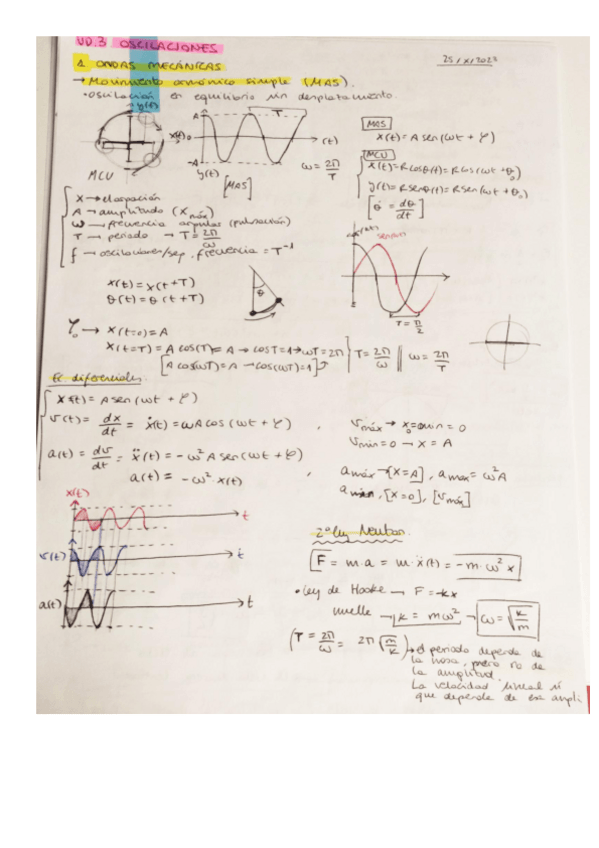 UD.3 OSCILACIONES
25/X/2023
1. ONDAS MECÁNICAS
→ Movimiento armónico simple (MAS).
• Oscilación en equilibrio sin desplazamiento.
y(t)
x(t)
A
0
-A
T
(t)
y(t)
MCU
[MAS]
ω = 2π/T
MAS
x(t) = A sen(ωt + φ)
MCU
x(t) = R cosθ(t) = R cos(ωt + θ₀)
y(t) = R senθ(t) = R sen(ωt + θ₀)
[θ̇ = dθ/dt]
x → elongación
A → amplitud (x máx)
ω → frecuencia angular (pulsación)
T → periodo → T = 2π/ω
f → oscilaciones/seg, frecuencia = T⁻¹
x(t) = x(t+T)
θ(t) = θ(t+T)
θ
T = π/2
φ₀ → x(t=0) = A
x(t=T) = A cos(T) = A → cosT = 1 → ωT = 2π
[A cos(ωT) = A → cos(ωT) = 1]
T = 2π/ω || ω = 2π/T
Ec diferenciales.
x(t) = A sen(ωt + φ)
v(t) = dx/dt = ẋ(t) = ωA cos(ωt + φ)
a(t) = dv/dt = ẍ(t) = -ω² A sen(ωt + φ)
a(t) = -ω² x(t)
v máx → x = 0
v mín = 0 → x = A
a máx → [x = A], a max = ω²A
a min, [x=0], [v máx]
x(t)
t
v(t)
t
a(t)
t
2ª ley Newton.
F = m·a = m·ẍ(t) = -m·ω² x
• Ley de Hooke → F = -kx
muelle → k = mω² → ω = √(k/m)
(T = 2π/ω = 2π √(m/k)) → el periodo depende de
la masa, pero no de
la amplitud.
La velocidad lineal sí
que depende de esa ampli